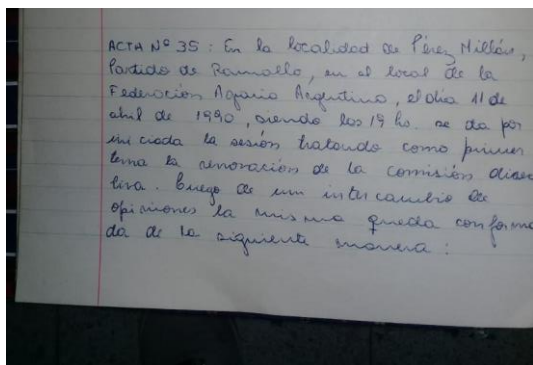 ACTA Nº 35 : En la localidad de Pérez Millán,
Partido de Ramallo, en el local de la
Federación Agraria Argentina, el día 11 de
abril de 1990, siendo las 19 hs. se da por
iniciada la sesión tratando como primer
tema la renovación de la comisión direc
tiva. Luego de un intercambio de
opiniones la misma queda conforma
da de la siguiente manera :